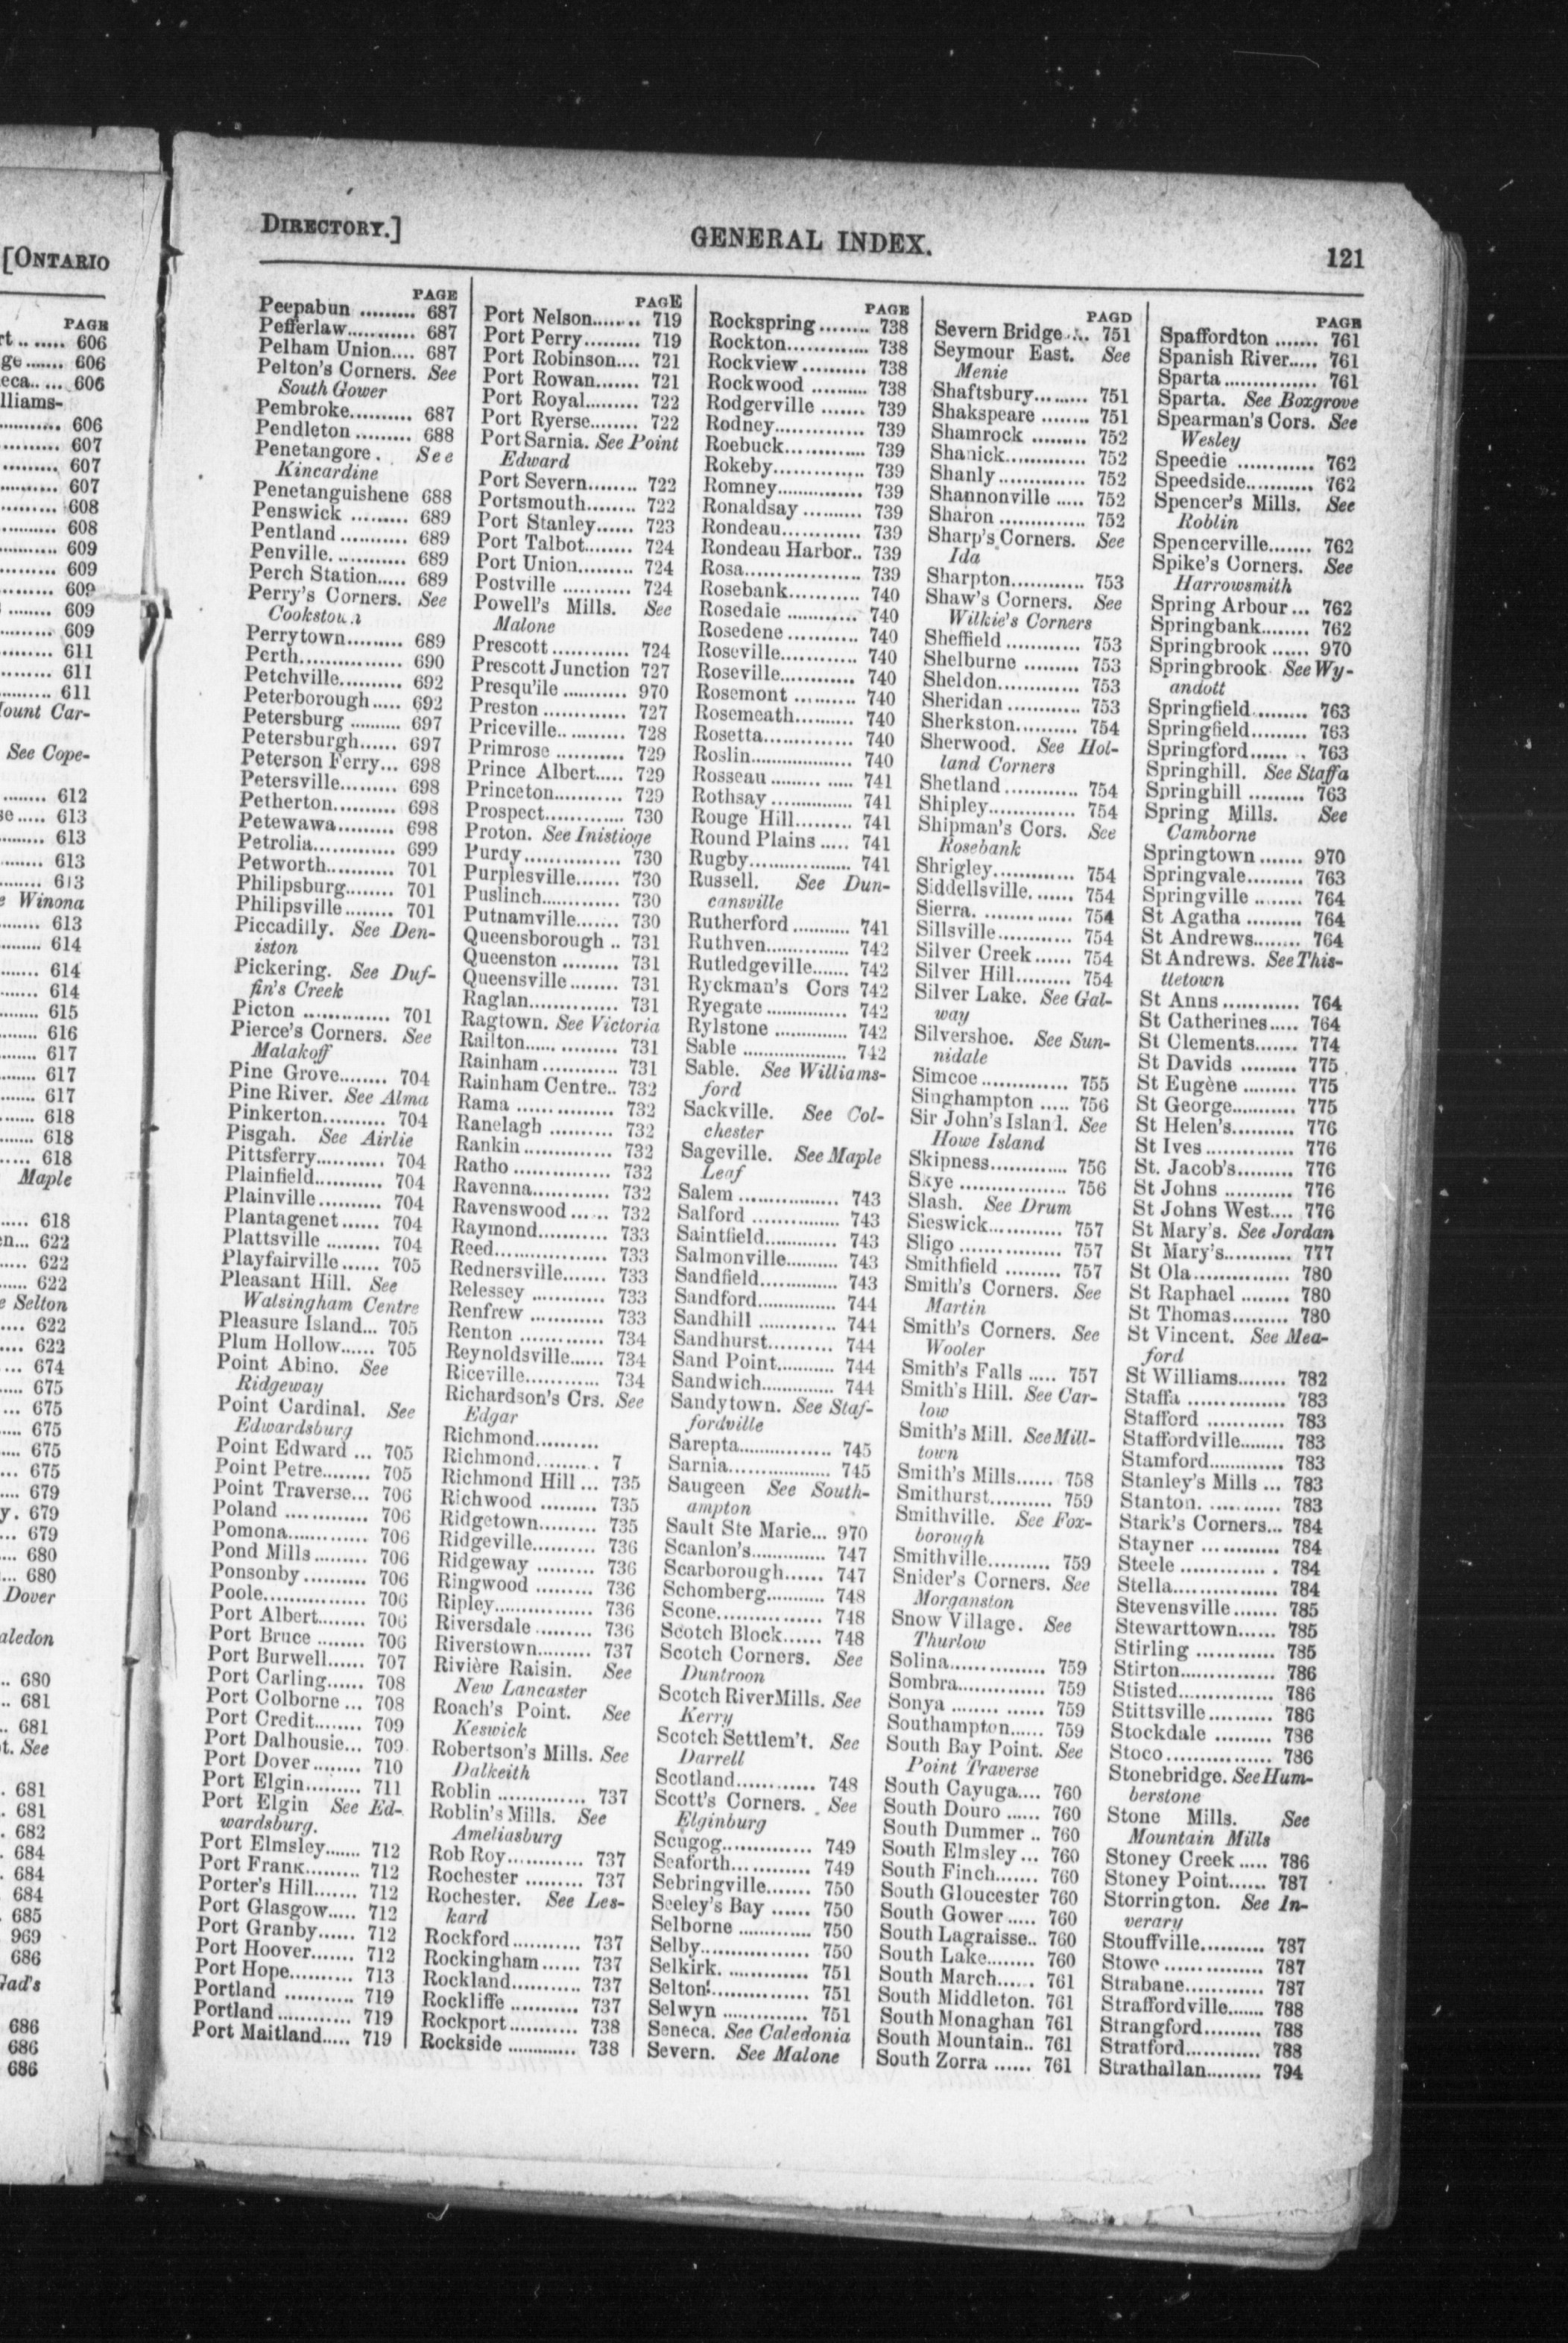 [ONTARIO
PAGE
rt ...... 606
ge ....... 606
eca..... 606
lliams-
............ 606
.......... 607
.......... 607
.......... 607
.......... 608
........... 608
........... 609
.......... 609
.......... 609
......... 609
.......... 609
.......... 611
......... 611
.......... 611
ount Car-
See Cope-
........ 612
se ..... 613
......... 613
........ 613
........ 613
e Winona
......... 613
......... 614
........ 614
........ 614
........ 615
........ 616
........ 617
........ 617
....... 617
....... 618
....... 618
...... 618
Maple
...... 618
en... 622
...... 622
...... 622
e Selton
.... 622
.... 622
... 674
..... 675
... 675
..... 675
..... 675
... 675
..... 679
y. 679
... 679
.... 680
... 680
Dover
aledon
.. 680
.. 681
.. 681
t. See
. 681
. 681
. 682
. 684
. 684
. 684
. 685
969
686
Gad's
686
686
686
DIRECTORY.]
GENERAL INDEX.
121
PAGE
Peepabun ......... 687
Pefferlaw........... 687
Pelham Union.... 687
Pelton's Corners. See
South Gower
Pembroke.......... 687
Pendleton ......... 688
Penetangore. See
Kincardine
Penetanguishene 688
Penswick ......... 689
Pentland ........... 689
Penville............ 689
Perch Station..... 689
Perry's Corners. See
Cookstown
Perrytown......... 689
Perth................ 690
Petchville.......... 692
Peterborough..... 692
Petersburg .......... 697
Petersburgh...... 697
Peterson Ferry... 698
Petersville......... 698
Petherton.......... 698
Petewawa......... 698
Petrolia............. 699
Petworth........... 701
Philipsburg........ 701
Philipsville........ 701
Piccadilly. See Den-
iston
Pickering. See Duf-
fin's Creek
Picton .............. 701
Pierce's Corners. See
Malakoff
Pine Grove........ 704
Pine River. See Alma
Pinkerton.......... 704
Pisgah. See Airlie
Pittsferry........... 704
Plainfield........... 704
Plainville .......... 704
Plantagenet...... 704
Plattsville ......... 704
Playfairville...... 705
Pleasant Hill. See
Walsingham Centre
Pleasure Island... 705
Plum Hollow...... 705
Point Abino. See
Ridgeway
Point Cardinal. See
Edwardsburg
Point Edward ... 705
Point Petre........ 705
Point Traverse... 706
Poland ............. 706
Pomona............. 706
Pond Mills......... 706
Ponsonby.......... 706
Poole................ 706
Port Albert........ 706
Port Bruce ........ 706
Port Burwell...... 707
Port Carling...... 708
Port Colborne ... 708
Port Credit........ 709
Port Dalhousie... 709
Port Dover........ 710
Port Elgin......... 711
Port Elgin See Ed-
wardsburg.
Port Elmsley....... 712
Port Frank......... 712
Porter's Hill....... 712
Port Glasgow..... 712
Port Granby...... 712
Port Hoover....... 712
Port Hope.......... 713
Portland ........... 719
Portland ............ 719
Port Maitland..... 719
PAGE
Port Nelson........ 719
Port Perry......... 719
Port Robinson.... 721
Port Rowan....... 721
Port Royal......... 722
Port Ryerse........ 722
Port Sarnia. See Point
Edward
Port Severn........ 722
Portsmouth........ 722
Port Stanley...... 723
Port Talbot........ 724
Port Union......... 724
Postville ........... 724
Powell's Mills. See
Malone
Prescott ............ 724
Prescott Junction 727
Presqu'ile........... 970
Preston ............. 727
Priceville........... 728
Primrose ........... 729
Prince Albert..... 729
Princeton........... 729
Prospect............. 730
Proton. See Inistioge
Purdy............... 730
Purplesville....... 730
Puslinch............ 730
Putnamville....... 730
Queensborough .. 731
Queenston ......... 731
Queensville........ 731
Raglan.............. 731
Ragtown. See Victoria
Railton............... 731
Rainham ............ 731
Rainham Centre.. 732
Rama ................ 732
Ranelagh .......... 732
Rankin.............. 732
Ratho ............... 732
Ravenna............ 732
Ravenswood ...... 732
Raymond........... 733
Reed................. 733
Rednersville....... 733
Relessey ............ 733
Renfrew ............ 733
Renton ............. 734
Reynoldsville...... 734
Riceville............ 734
Richardson's Crs. See
Edgar
Richmond..........
Richmond.......... 7
Richmond Hill... 735
Richwood ......... 735
Ridgetown......... 735
Ridgeville.......... 736
Ridgeway ......... 736
Ringwood ......... 736
Ripley................ 736
Riversdale ......... 736
Riverstown......... 737
Rivière Raisin. See
New Lancaster
Roach's Point. See
Keswick
Robertson's Mills. See
Dalkeith
Roblin .............. 737
Roblin's Mills. See
Ameliasburg
Rob Roy............ 737
Rochester ......... 737
Rochester. See Les-
kard
Rockford........... 737
Rockingham...... 737
Rockland........... 737
Rockliffe ........... 737
Rockport........... 738
Rockside ............ 738
PAGE
Rockspring........ 738
Rockton............. 738
Rockview.......... 738
Rockwood ......... 738
Rodgerville ....... 739
Rodney.............. 739
Roebuck............. 739
Rokeby.............. 739
Romney............... 739
Ronaldsay.......... 739
Rondeau............ 739
Rondeau Harbor.. 739
Rosa.................. 739
Rosebank........... 740
Rosedale ............ 740
Rosedene ........... 740
Roseville............ 740
Roseville............ 740
Rosemont .......... 740
Rosemeath.......... 740
Rosetta.............. 740
Roslin.................. 740
Rosseau ............. 741
Rothsay .............. 741
Rouge Hill......... 741
Round Plains ..... 741
Rugby................. 741
Russell. See Dun-
cansville
Rutherford ........... 741
Ruthven.............. 742
Rutledgeville....... 742
Ryckman's Cors 742
Ryegate ............... 742
Rylstone ............. 742
Sable .................... 742
Sable. See Williams-
ford
Sackville. See Col-
chester
Sageville. See Maple
Leaf
Salem ................ 743
Salford .............. 743
Saintfield............. 743
Salmonville.......... 743
Sandfield............. 743
Sandford............... 744
Sandhill ............. 744
Sandhurst.......... 744
Sand Point........... 744
Sandwich.............. 744
Sandytown. See Staf-
fordville
Sarepta................ 745
Sarnia.................. 745
Saugeen See South-
ampton
Sault Ste Marie... 970
Scanlon's............. 747
Scarborough...... 747
Schomberg.......... 748
Scone................. 748
Scotch Block...... 748
Scotch Corners. See
Duntroon
Scotch River Mills. See
Kerry
Scotch Settlem't. See
Darrell
Scotland............ 748
Scott's Corners. See
Elginburg
Scugog.............. 749
Seaforth............. 749
Sebringville....... 750
Seeley's Bay ...... 750
Selborne ............ 750
Selby................. 750
Selkirk. ............. 751
Selton................ 751
Selwyn ............. 751
Seneca. See Caledonia
Severn. See Malone
PAGD
Severn Bridge.... 751
Seymour East. See
Menie
Shaftsbury......... 751
Shakspeare ........ 751
Shamrock ......... 752
Shanick............. 752
Shanly.............. 752
Shannonville ..... 752
Sharon .............. 752
Sharp's Corners. See
Ida
Sharpton............ 753
Shaw's Corners. See
Wilkie's Corners
Sheffield ............ 753
Shelburne ......... 753
Sheldon............. 753
Sheridan ............ 753
Sherkston.......... 754
Sherwood. See Hol-
land Corners
Shetland ............ 754
Shipley.............. 754
Shipman's Cors. See
Rosebank
Shrigley............. 754
Siddellsville....... 754
Sierra. .............. 754
Sillsville............ 754
Silver Creek...... 754
Silver Hill......... 754
Silver Lake. See Gal-
way
Silvershoe. See Sun-
nidale
Simcoe .............. 755
Singhampton ..... 756
Sir John's Island. See
Howe Island
Skipness............. 756
Skye ................. 756
Slash. See Drum
Sieswick............ 757
Sligo ................ 757
Smithfield ......... 757
Smith's Corners. See
Martin
Smith's Corners. See
Wooler
Smith's Falls ..... 757
Smith's Hill. See Car-
low
Smith's Mill. See Mill-
town
Smith's Mills...... 758
Smithurst.......... 759
Smithville. See Fox-
borough
Smithville.......... 759
Snider's Corners. See
Morganston
Snow Village. See
Thurlow
Solina............... 759
Sombra.............. 759
Sonya ............... 759
Southampton...... 759
South Bay Point. See
Point Traverse
South Cayuga.... 760
South Douro ...... 760
South Dummer .. 760
South Elmsley... 760
South Finch....... 760
South Gloucester 760
South Gower ..... 760
South Lagraisse.. 760
South Lake........ 760
South March...... 761
South Middleton. 761
South Monaghan 761
South Mountain.. 761
South Zorra ...... 761
PAGE
Spaffordton ....... 761
Spanish River..... 761
Sparta............... 761
Sparta. See Boxgrove
Spearman's Cors. See
Wesley
Speedie ............ 762
Speedside........... 762
Spencer's Mills. See
Roblin
Spencerville....... 762
Spike's Corners. See
Harrowsmith
Spring Arbour... 762
Springbank........ 762
Springbrook ...... 970
Springbrook See Wy-
andott
Springfield......... 763
Springfield......... 763
Springford........ 763
Springhill. See Staffa
Springhill ......... 763
Spring Mills. See
Camborne
Springtown ....... 970
Springvale......... 763
Springville ........ 764
St Agatha ......... 764
St Andrews........ 764
St Andrews. See This-
tletown
St Anns ............ 764
St Catherines..... 764
St Clements....... 774
St Davids ......... 775
St Eugène ......... 775
St George........... 775
St Helen's.......... 776
St Ives .............. 776
St. Jacob's......... 776
St Johns ........... 776
St Johns West.... 776
St Mary's. See Jordan
St Mary's........... 777
St Ola............... 780
St Raphael ........ 780
St Thomas......... 780
St Vincent. See Mea-
ford
St Williams........ 782
Staffa ............... 783
Stafford ............ 783
Staffordville........ 783
Stamford............ 783
Stanley's Mills ... 783
Stanton. ........... 783
Stark's Corners... 784
Stayner ............ 784
Steele .............. 784
Stella............... 784
Stevensville....... 785
Stewarttown...... 785
Stirling ............ 785
Stirton............... 786
Stisted............... 786
Stittsville .......... 786
Stockdale ......... 786
Stoco ................ 786
Stonebridge. See Hum-
berstone
Stone Mills. See
Mountain Mills
Stoney Creek ..... 786
Stoney Point...... 787
Storrington. See In-
verary
Stouffville.......... 787
Stowe ............... 787
Strabane............ 787
Straffordville....... 788
Strangford......... 788
Stratford............ 788
Strathallan......... 794